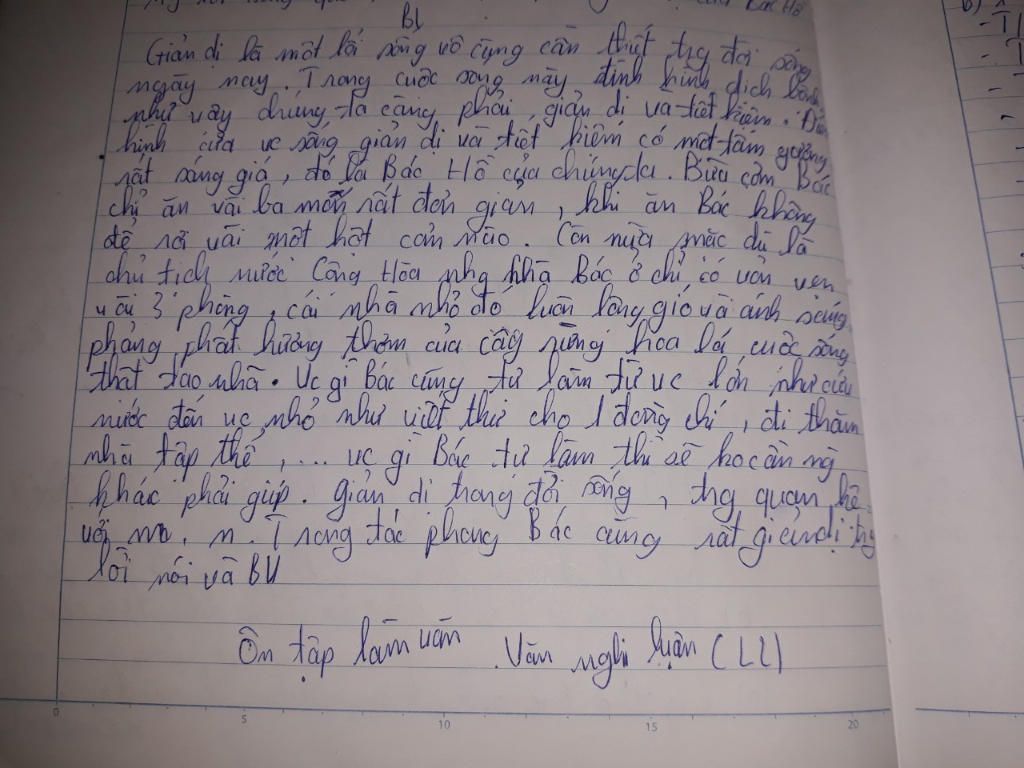 của Bác Hồ
BL
Giản dị là một lối sống vô cùng cần thiết trg đời sống
ngày nay. Trong cuộc sống này tình hình dịch bệnh
như vậy chúng ta càng phải giản dị và tiết kiệm.
hình của vc sống giản dị và tiết kiếm có một tấm gương
rất sáng giá, đó là Bác Hồ của chúng ta. Bữa cơm Bác
chỉ ăn vài ba món rất đơn giản, khi ăn Bác không
để rơi vãi một hột cơm nào. Còn nữa mặc dù là
chủ tịch nước Cộng Hòa nhg nhà Bác ở chỉ có vỏn vẹn
vài 3 phòng, cái nhà nhỏ đó luôn lộng gió và ánh sáng
phảng phất hương thơm của cây rừng hoa lá cuộc sống
thật tao nhã. Vc gì Bác cũng tự làm từ vc lớn như cứu
nước đến vc nhỏ như viết thư cho 1 đồng chí, đi thăm
nhà tập thể, ... vc gì Bác tự làm thì sẽ ko cần ng
khác phải giúp. Giản dị trong đời sống, trg quan hệ
với m.n. Trong tác phong Bác cũng rất giản dị trg
lời nói và BV
Ôn tập làm văn. Văn nghị luận (LL)
0 5 10 15 20